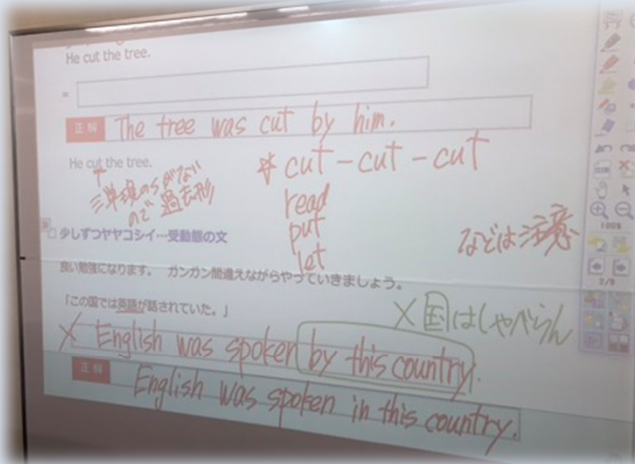 He cut the tree.
=
正解 The tree was cut by him.
He cut the tree.
↑
三単現のsがない
ので過去形
* cut - cut - cut
read
put
let
などは注意
少しずつヤヤコシイ…受動態の文
良い勉強になります。 ガンガン間違えながらやっていきましょう。
「この国では英語が話されていた。」
×国はしゃべらん
× English was spoken by this country.
正解 English was spoken in this country.
100%